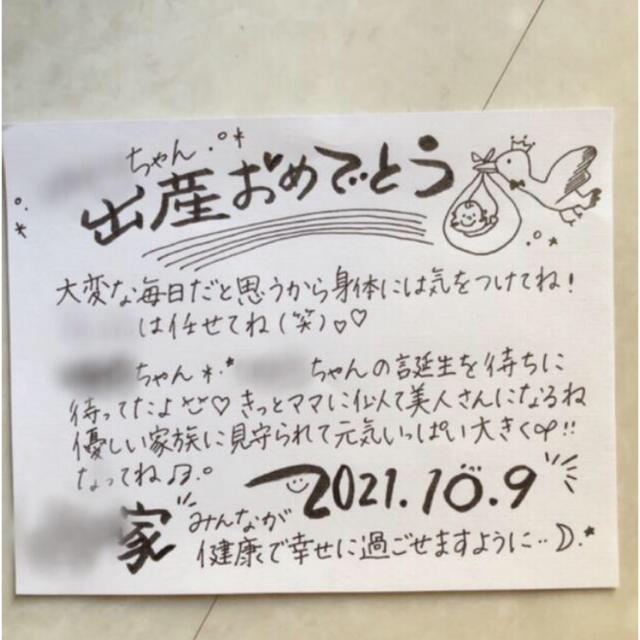 ちゃん
出産おめでとう
大変な毎日だと思うから身体には気をつけてね!
は任せてね(笑)♡♡
ちゃん ちゃんの誕生を待ちに
待ってたよ♡きっとママに似て美人さんになるね
優しい家族に見守られて元気いっぱい大きく!!
なってね♫
2021.10.9
家 みんなが
健康で幸せに過ごせますように‥